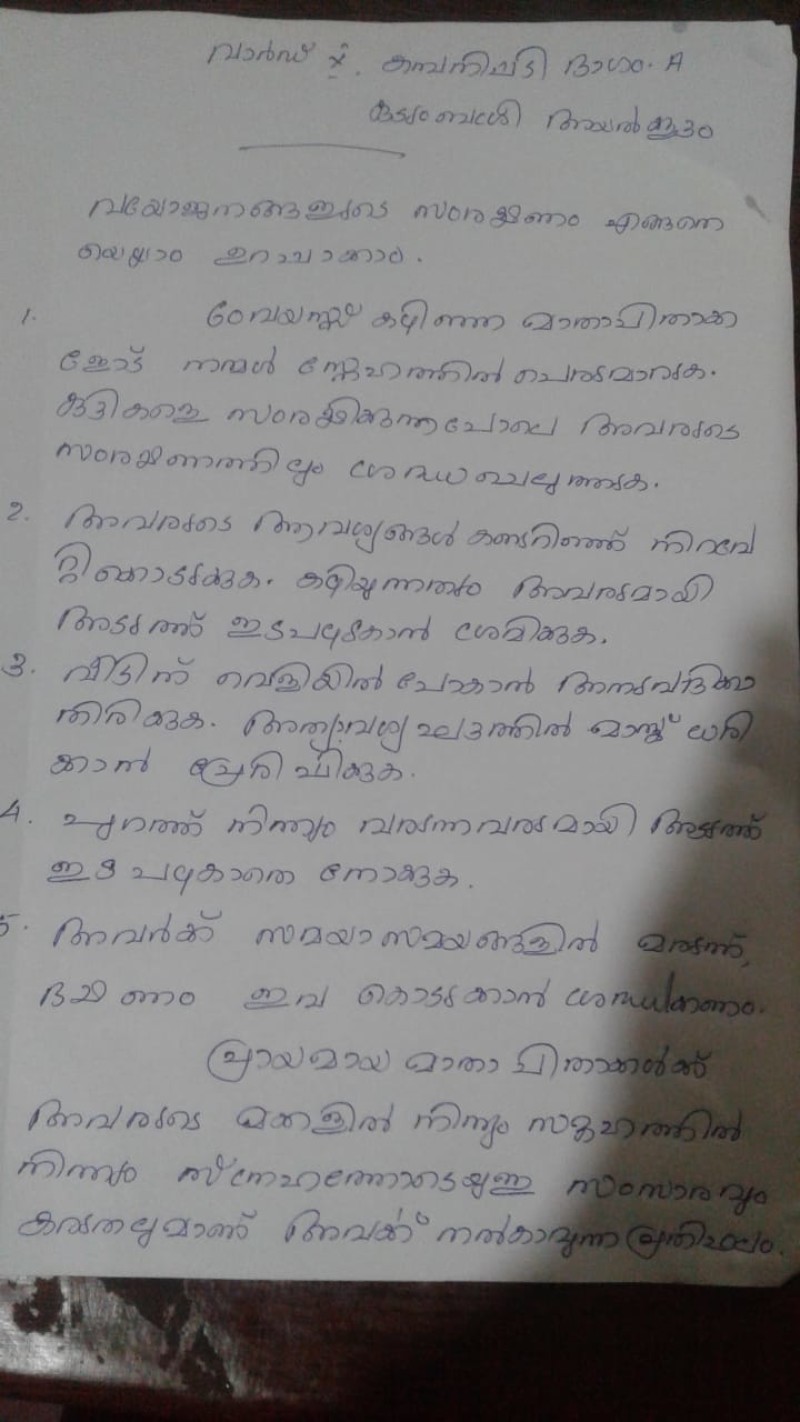 വാർഡ് X. കമ്പനിപ്പടി ഭാഗം. A
കുടുംബശ്രീ അയൽക്കൂട്ടം
വയോജനങ്ങളുടെ സംരക്ഷണം എങ്ങനെ
യെല്ലാം ഉറപ്പാക്കാം.
1. 60 വയസ്സ് കഴിഞ്ഞ മാതാപിതാക്ക
ളോട് നമ്മൾ സ്നേഹത്തിൽ പെരുമാറുക.
കുട്ടികളെ സംരക്ഷിക്കുന്നപോലെ അവരുടെ
സംരക്ഷണത്തിലും ശ്രദ്ധ ചെലുത്തുക.
2. അവരുടെ ആവശ്യങ്ങൾ കണ്ടറിഞ്ഞ് നിറവേ
റ്റികൊടുക്കുക. കഴിയുന്നതും അവരുമായി
അടുത്ത് ഇടപഴുകാൻ ശ്രമിക്കുക.
3. വീടിന് വെളിയിൽ പോകാൻ അനുവദിക്കാ
തിരിക്കുക. അത്യാവശ്യ ഘട്ടത്തിൽ മാസ്ക് ധരി
ക്കാൻ പ്രേരിപ്പിക്കുക.
4. പുറത്ത് നിന്നും വരുന്നവരുമായി അടുത്ത്
ഇടപഴുകാതെ നോക്കുക.
5. അവർക്ക് സമയാസമയങ്ങളിൽ മരുന്ന്,
ഭക്ഷണം ഇവ കൊടുക്കാൻ ശ്രദ്ധിക്കണം.
പ്രായമായ മാതാപിതാക്കൾക്ക്
അവരുടെ മക്കളിൽ നിന്നും സമൂഹത്തിൽ
നിന്നും സ്നേഹത്തോടെയുള്ള സംസാരവും
കരുതലുമാണ് അവർക്ക് നൽകാവുന്ന പ്രതിഫലം.